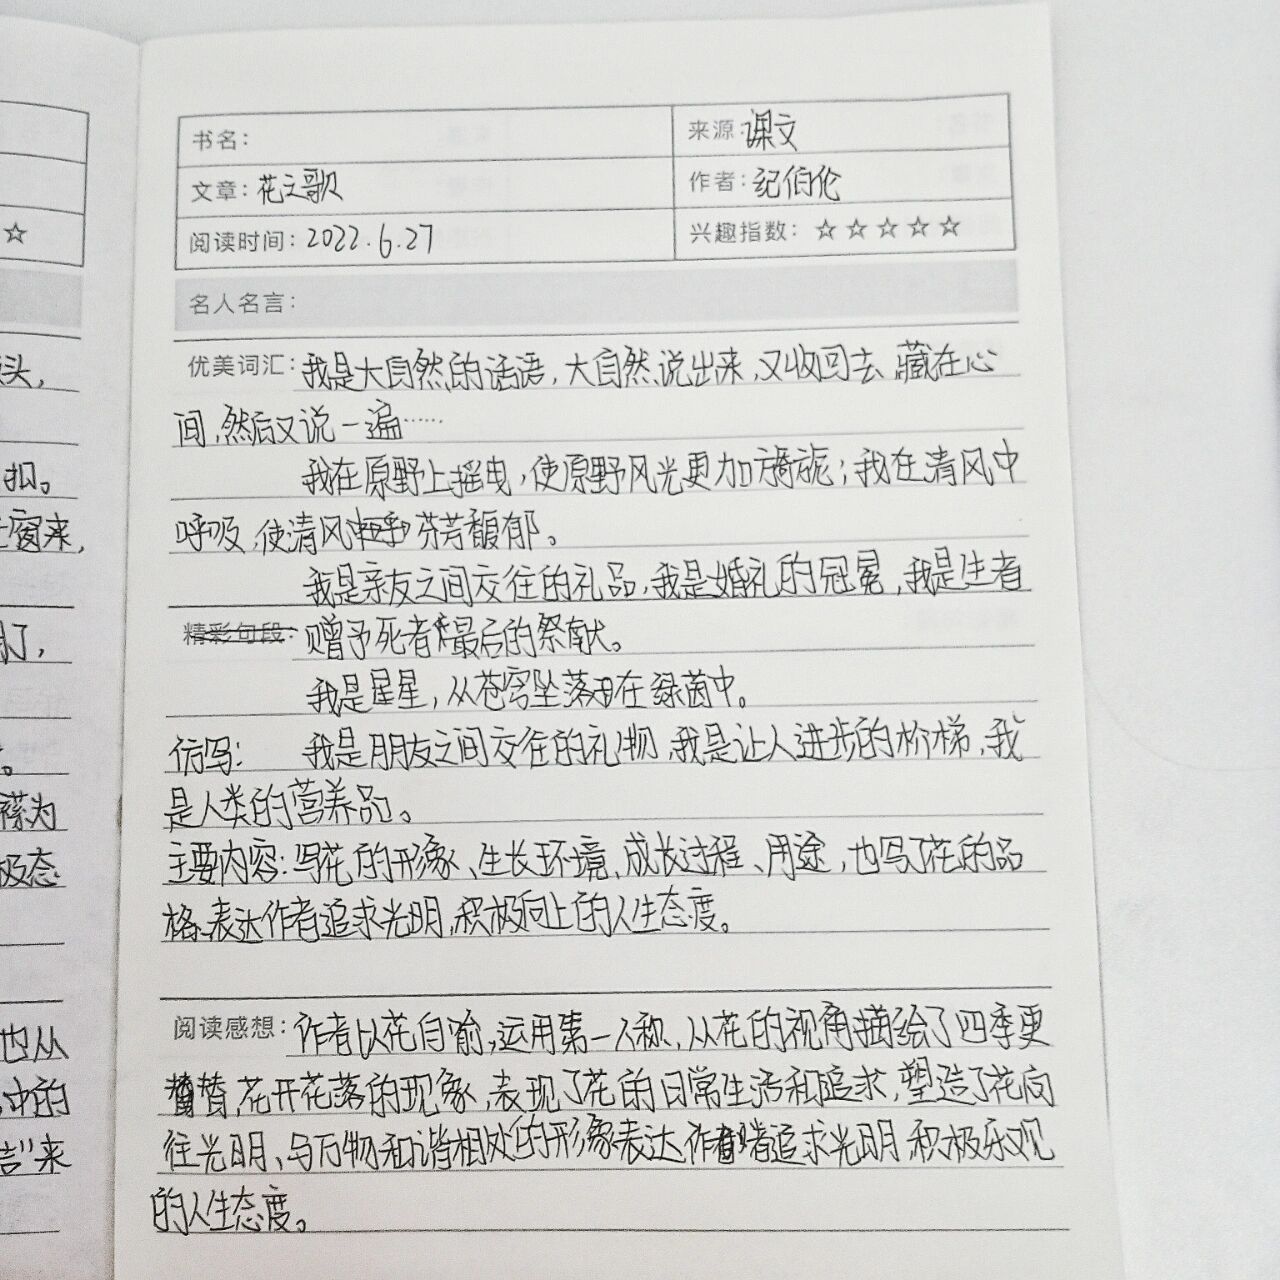 书名：
来源：课文
文章：花之歌
作者：纪伯伦
阅读时间：2022.6.27
兴趣指数：☆☆☆☆☆
名人名言：
优美词汇：我是大自然的话语，大自然说出来，又收回去，藏在心
间，然后又说一遍……
我在原野上摇曳，使原野风光更加旖旎；我在清风中
呼吸，使清风芬芳馥郁。
我是亲友之间交往的礼品，我是婚礼的冠冕，我是生者
精彩句段：赠予死者最后的祭献。
我是星星，从苍穹坠落在绿茵中。
仿写：我是朋友之间交往的礼物，我是让人进步的阶梯，我
是人类的营养品。
主要内容：写花的形象、生长环境、成长过程、用途，也写了花的品
格、表达作者追求光明，积极向上的人生态度。
阅读感想：作者以花自喻，运用第一人称，从花的视角描绘了四季更
替，花开花落的现象，表现了花的日常生活和追求，塑造了花向
往光明、与万物和谐相处的形象表达作者追求光明，积极乐观
的人生态度。
☆
头，
扣。
窗来，
了，
。
为
极态
也从
中的
来